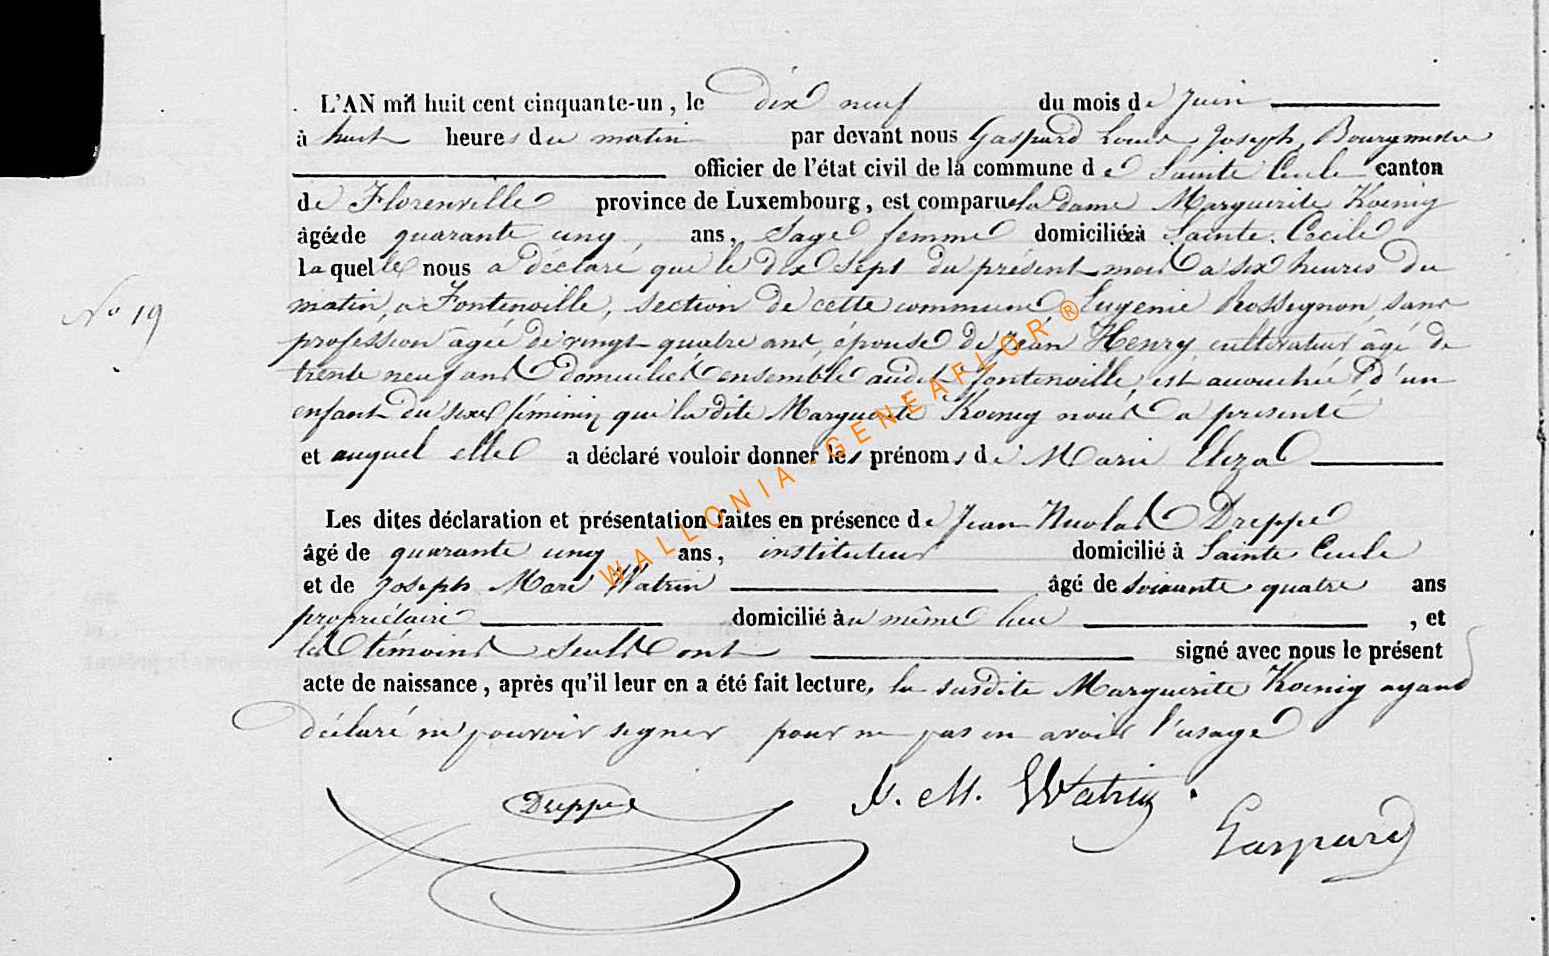 L'AN mil huit cent cinquante-un, le dix neuf du mois de Juin
à huit heures du matin par devant nous Gaspard Louis Joseph, Bourgmestre
officier de l'état civil de la commune de Sainte Cecile canton
de Florenville province de Luxembourg, est comparue la dame Marguerite Koenig
âgée de quarante cinq, ans, Sage femme domiciliée à Sainte. Cecile
laquelle nous a déclaré que le dix Sept du présent mois à six heures du
matin, à Fontenoille, section de cette commune, Eugenie Rossignon, sans
profession agée de vingt quatre ans épouse de Jean Henry cultivateur, âgé de
trente neuf ans domiciliés ensemble audit Fontenoille, est accouchée d'un
enfant du sexe féminin que la dite Marguerite Koenig nous a presenté
et auquel elle a déclaré vouloir donner les prénoms de Marie Eliza
Les dites déclaration et présentation faites en présence de Jean Nicolas Dreppe
âgé de quarante cinq ans, instituteur domicilié à Sainte Cecile
et de Joseph Marc Watrin âgé de soixante quatre ans
propriétaire domicilié au même lieu, et
les témoins seuls ont signé avec nous le présent
acte de naissance, après qu'il leur en a été fait lecture, la susdite Marguerite Koenig ayant
déclaré ne pouvoir signer pour ne pas en avoir l'usage
No 19
Dreppe J. M. Watrin. Gaspard
WALLONIA-GENEAFLOR®